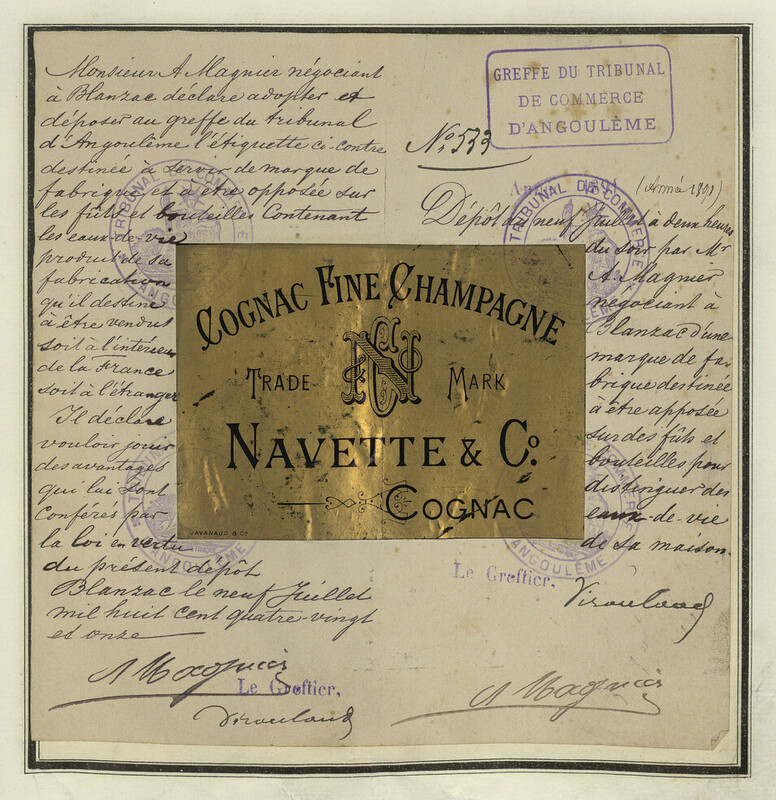 Monsieur A Magnier négociant
à Blanzac déclare adopter et
déposer au greffe du tribunal
d'Angoulême l'étiquette ci-contre
destinée à servir de marque de
fabrique et a être opposée sur
les fûts et bouteilles Contenant
les eaux-de-vie
produit de sa
fabrication
qu'il destine
à être vendus
soit à l'intérieur
de la France
soit à l'étranger
Il déclare
vouloir jouir
des avantages
qui lui sont
Conférés par
la loi en vertu
du présent dépôt
Blanzac le neuf Juillet
mil huit cent quatre-vingt
et onze
A Magnier
Le Greffier,
GREFFE DU TRIBUNAL
DE COMMERCE
D'ANGOULÊME
No. 533
(Année 1891)
Dépôt du neuf Juillet à deux heures
du soir par Mr
A. Magnier
négociant à
Blanzac d'une
marque de fa-
brique destinée
à être apposée
sur des fûts et
bouteilles pour
distinguer des
eaux-de-vie
de sa maison.
Le Greffier,
A Magnier
TRIBUNAL DE COMMERCE
ANGOULÊME
COGNAC FINE CHAMPAGNE
TRADE MARK
NAVETTE & Co.
COGNAC
JAVANAUD & Cie